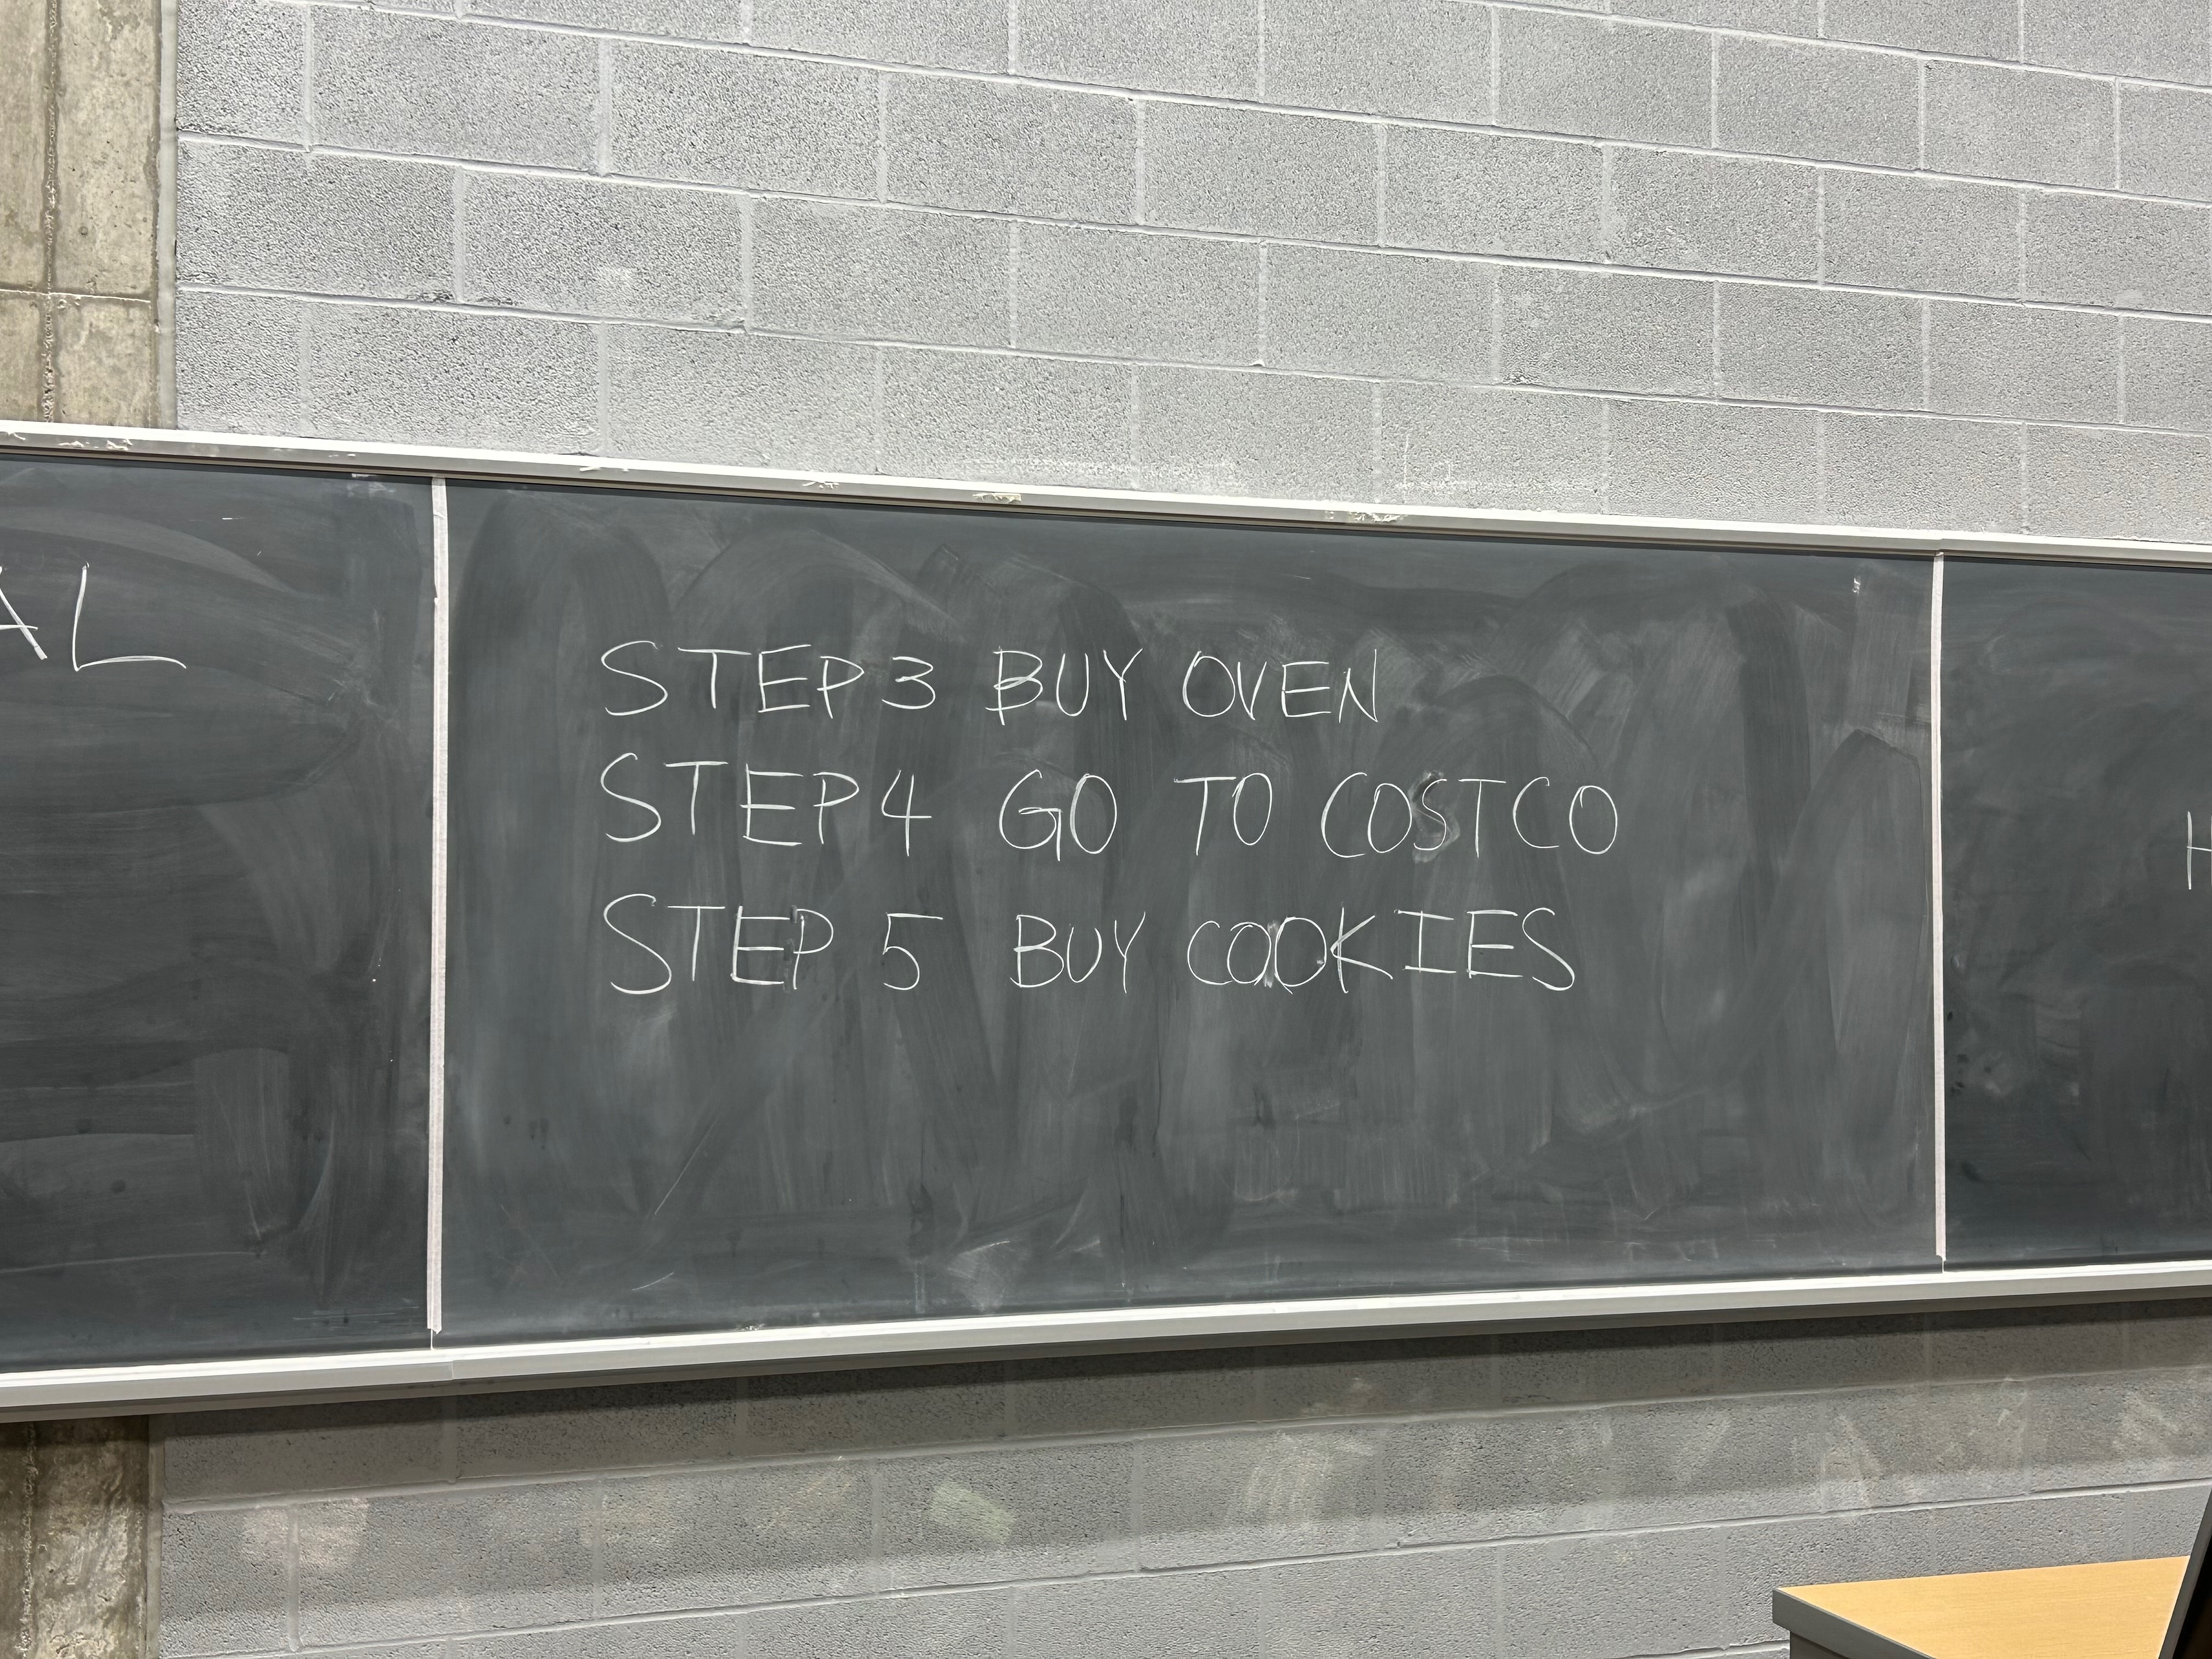 AL
STEP 3 BUY OVEN
STEP 4 GO TO COSTCO
STEP 5 BUY COOKIES
H